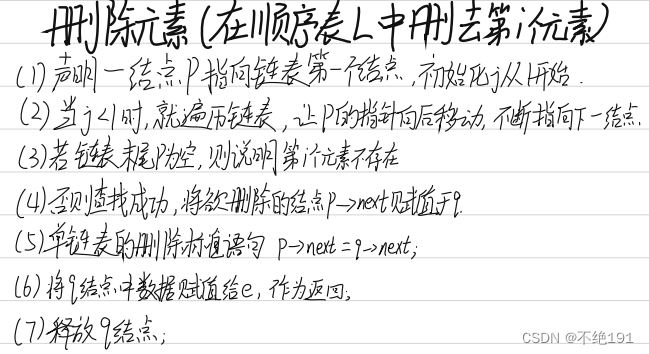 删除元素(在顺序表L中删去第i个元素)
(1)声明一结点P指向链表第一个结点,初始化j从1开始.
(2)当j<1时,就遍历链表,让P的指针向后移动,不断指向下一结点.
(3)若链表末尾P为空,则说明第i个元素不存在
(4)否则查找成功,将欲删除的结点p→next赋值于q.
(5)单链表的删除标准语句 p→next=q→next;
(6)将q结点中数据赋值给e,作为返回;
(7)释放q结点;
CSDN @不绝191